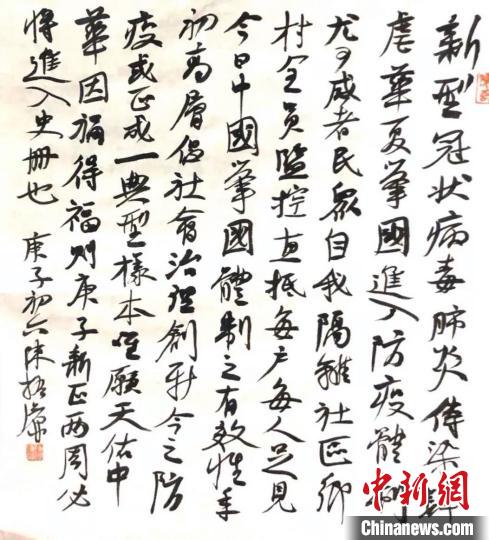 新型冠状病毒肺炎傳染肆
虐華夏舉國進入防疫體制
尤可感者民眾自我隔離社區鄉
村全員監控直抵每户每人足見
今日中國舉國體制之有效性年
初高層倡社會治理創新今之防
疫或正成一典型樣本唯願天佑中
華因禍得福則庚子新正兩周必
將進入史册也 庚子初六陳振濂
中新网
Chinanews.com